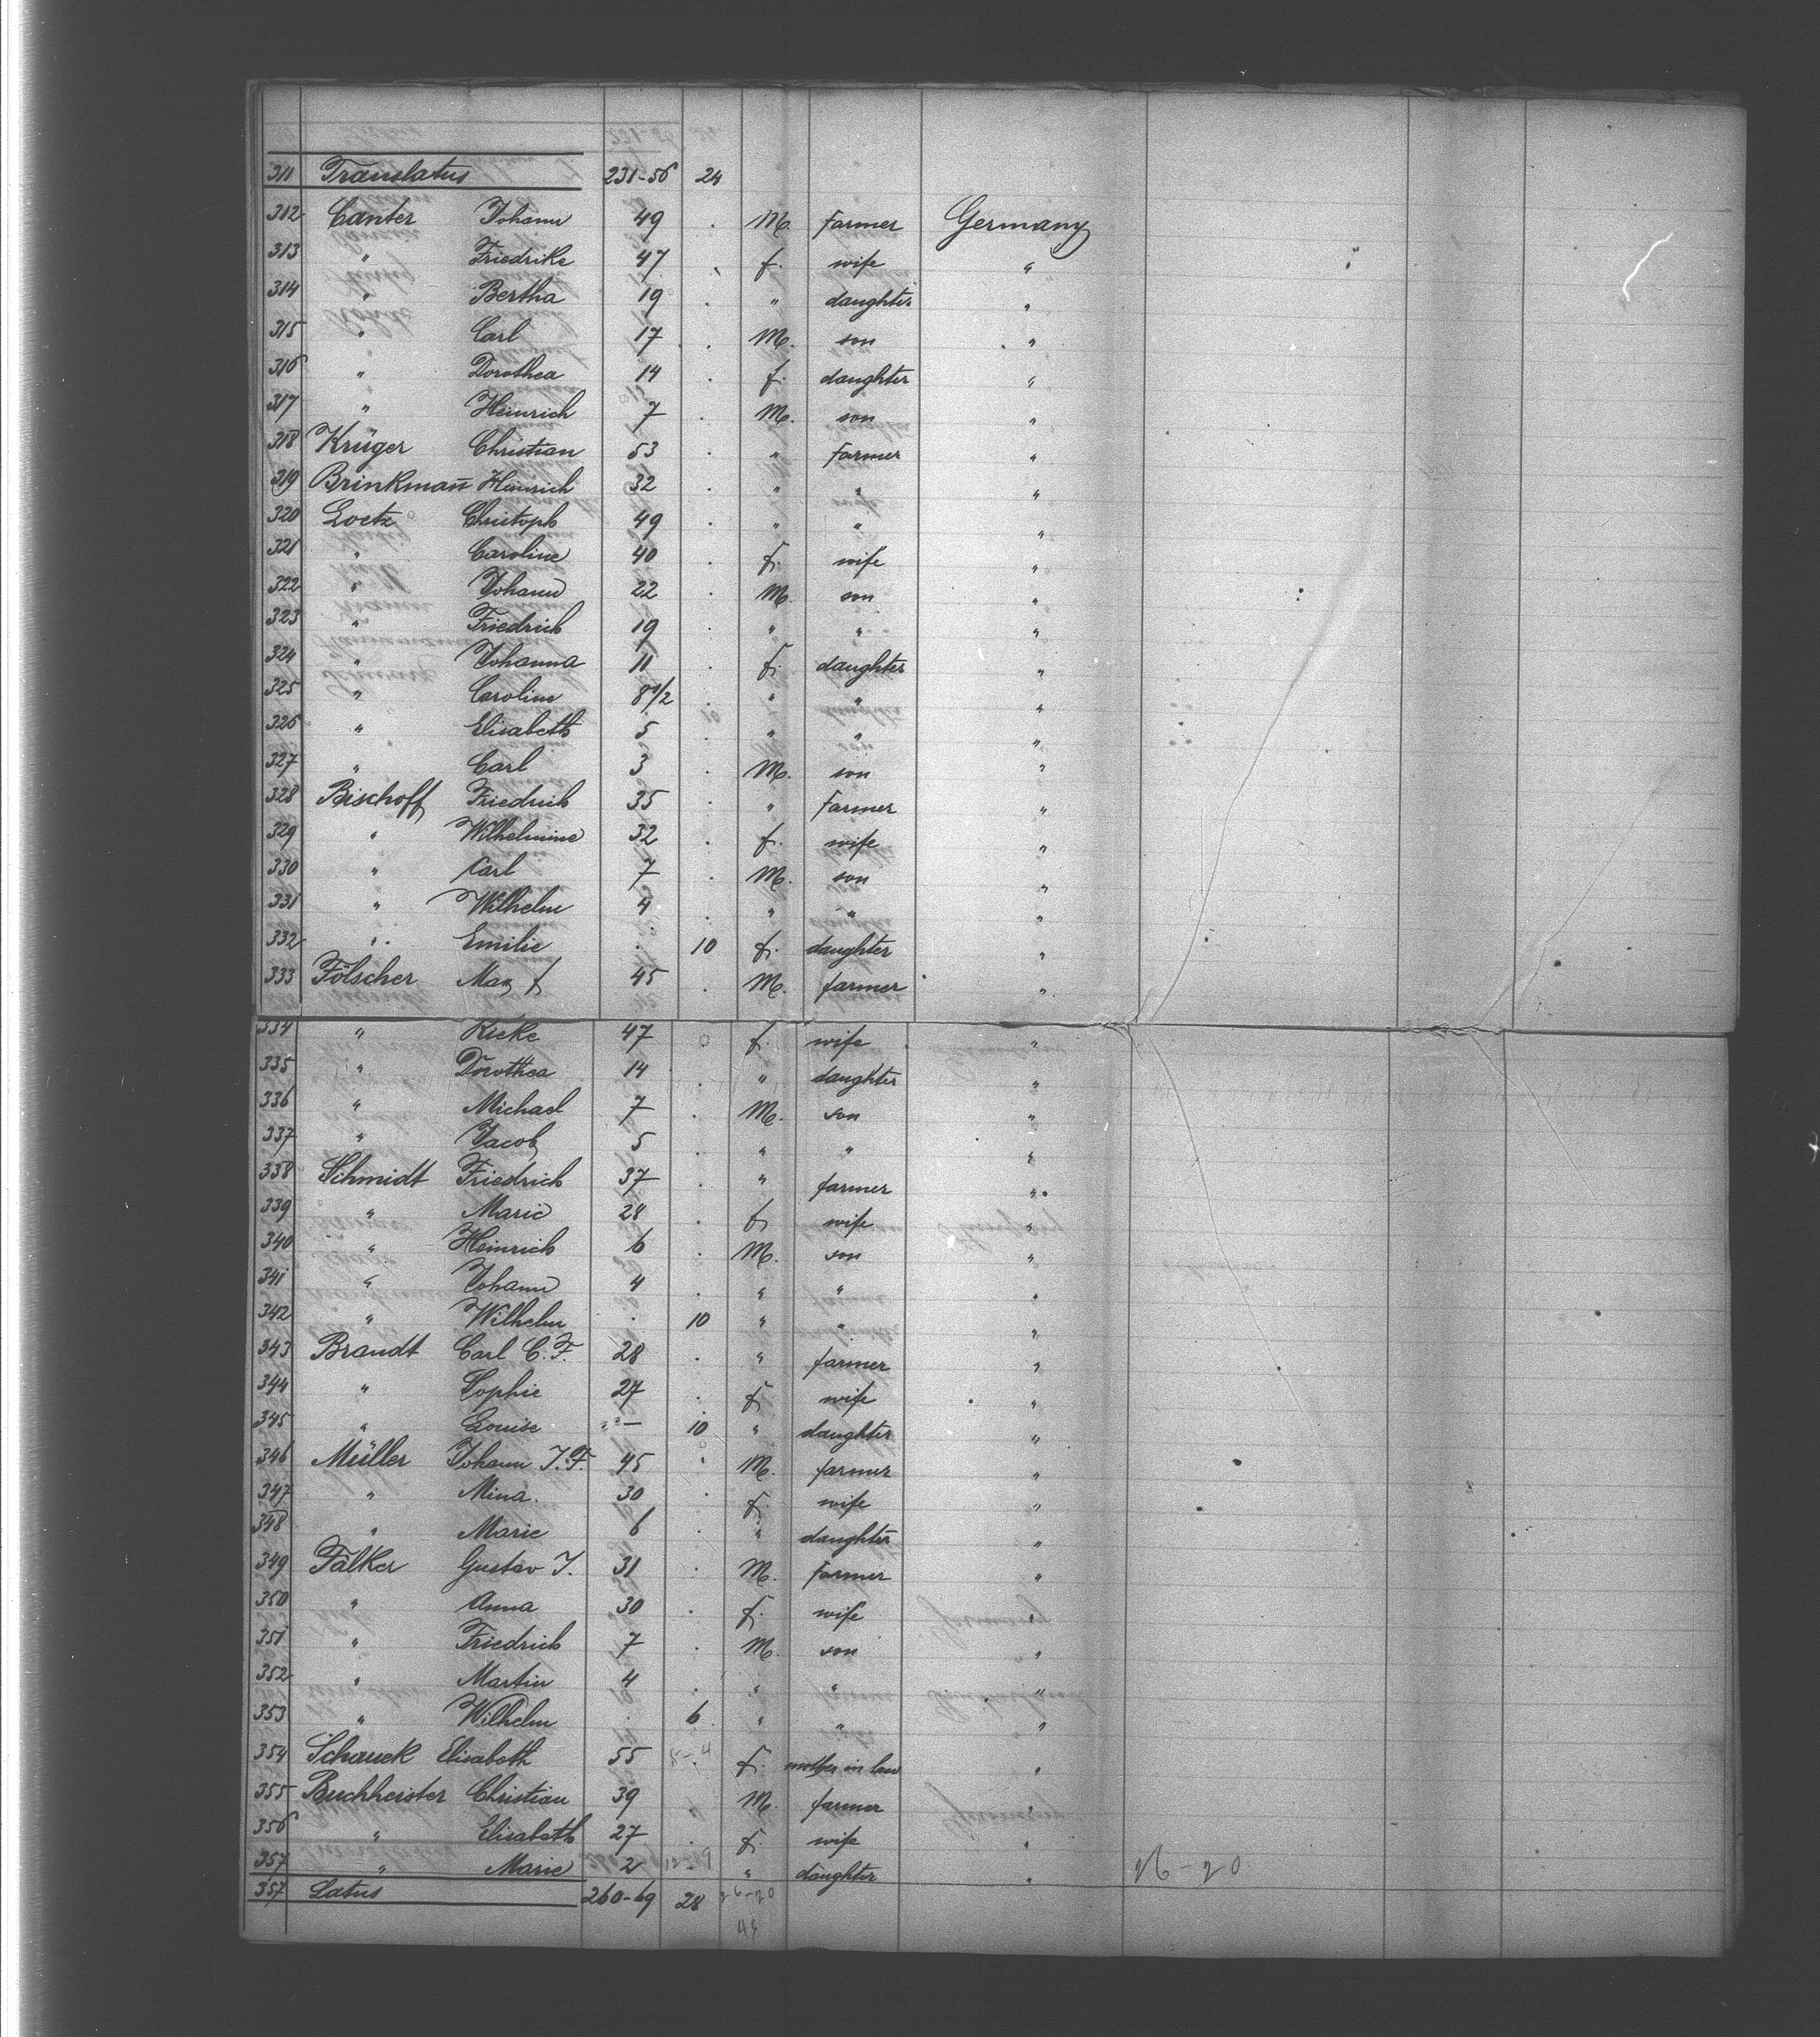 311 Translatus 231-56 24
312 Canter Johann 49 . M. farmer Germany
313 " Friedrike 47 . f. wife "
314 " Bertha 19 . " daughter "
315 " Carl 17 . M. son "
316 " Dorothea 14 . f. daughter "
317 " Heinrich 7 . M. son "
318 Krüger Christian 53 . " farmer "
319 Brinkmañ Heinrich 32 . " " "
320 Loetz Christoph 49 . " " "
321 " Caroline 40 . f. wife "
322 " Johann 22 . M. son "
323 " Friedrich 19 . " " "
324 " Johanna 11 . f. daughter "
325 " Carolin 8 1/2 . " " "
326 " Elisabeth 5 . " " "
327 " Carl 3 . M. son "
328 Bischoff Friedrich 35 . " farmer "
329 " Wilhelmine 32 . f. wife "
330 " Carl 7 . M. son "
331 " Wilhelm 4 . " " "
332 " Emilie . 10 f. daughter "
333 Fölscher Max f 45 . M. farmer "
334 " Rieke 47 f. wife "
335 " Dorothea 14 . " daughter "
336 " Michael 7 . M. son "
337 " Jacob 5 . " " "
338 Schmidt Friedrich 37 . " farmer "
339 " Marie 28 . f. wife "
340 " Heinrich 6 . M. son "
341 " Johann 4 . " " "
342 " Wilhelm . 10 " " "
343 Brandt Carl C. F. 28 . " farmer "
344 " Sophie 27 . f. wife "
345 " Louise — 10 " daughter "
346 Müller Johann J. F. 45 . M. farmer "
347 " Mina. 30 . f. wife "
348 " Marie 6 . " daughter "
349 Falker Gustav J. 31 . M. farmer "
350 " Anna 30 . f. wife "
351 " Friedrich 7 . M. son "
352 " Martin 4 . " " "
353 " Wilhelm . 6 " " "
354 Schauek Elisabeth 55 f. mother in law "
355 Buchheister Christian 39 M. farmer "
356 " Elisabeth 27 . f. wife "
357 " Marie 2 " daughter " 26-20
357 Latus 260-69 28 26-20